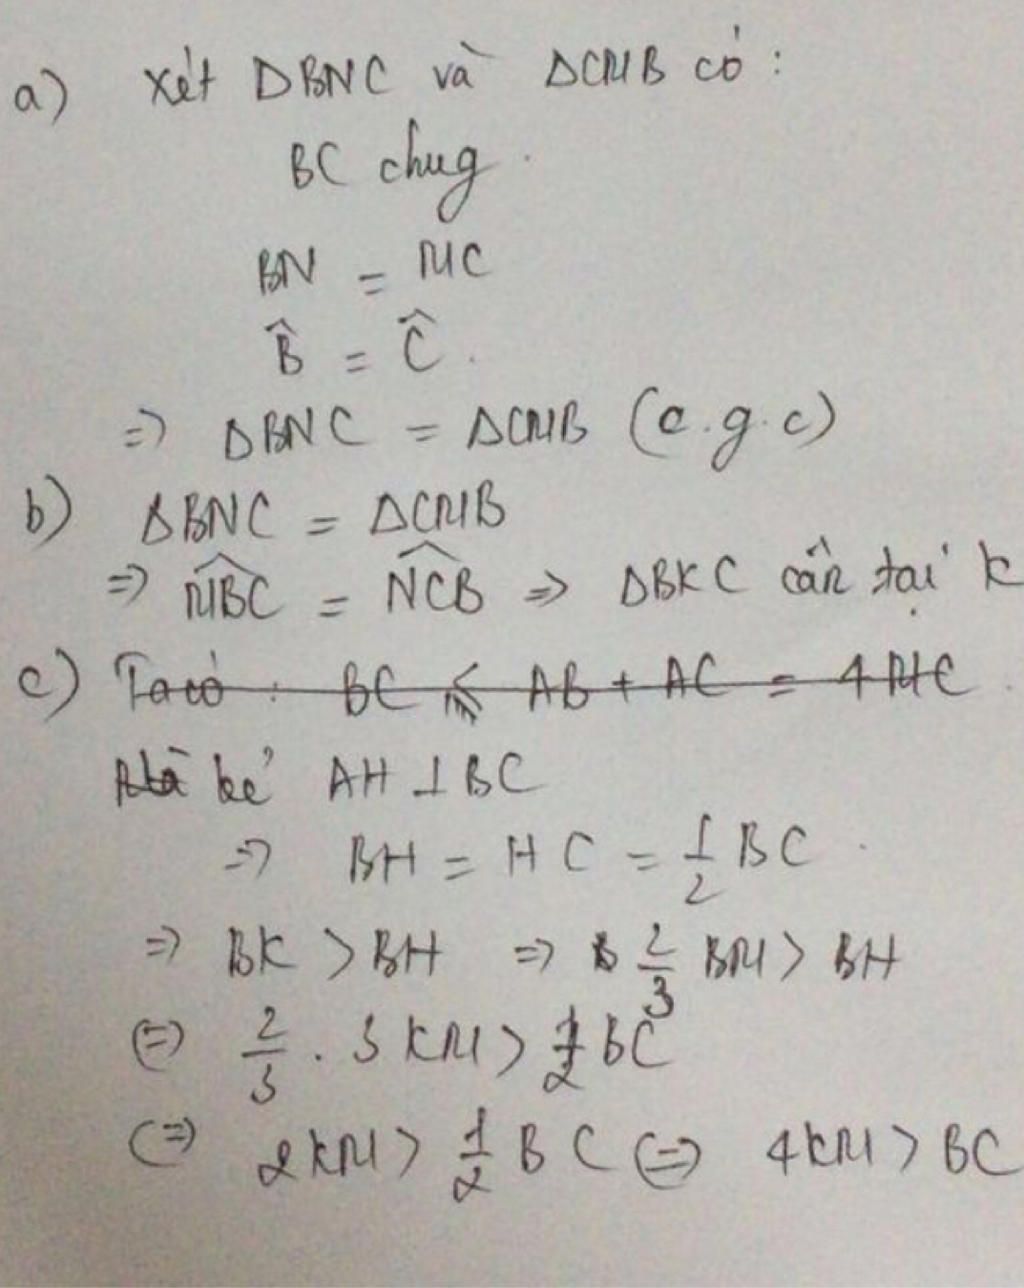 a) Xét ΔBNC và ΔCMB có :
BC chug.
BN = MC
B̂ = Ĉ.
=> ΔBNC = ΔCMB (c.g.c)
b) ΔBNC = ΔCMB
=> \widehat{MBC} = \widehat{NCB} => ΔBKC cân tại K
c) Ta có : BC < AB + AC = 4MC.
kẻ AH ⊥ BC
=> BH = HC = 1/2 BC.
=> BK > BH => 2/3 BM > BH
(=) 2/3 . 3 KM > 1/2 BC
(=) 2KM > 1/2 BC (=) 4KM > BC